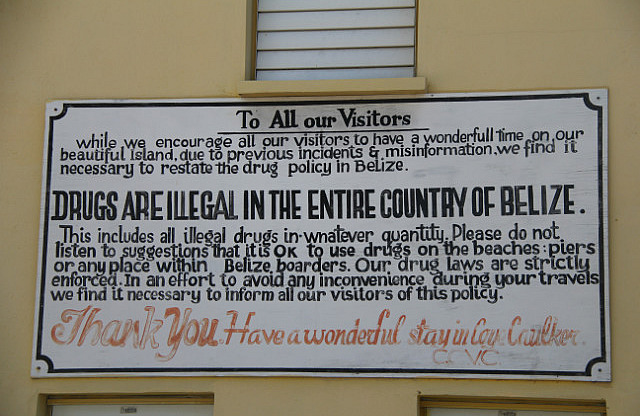 To All our Visitors
while we encourage all our visitors to have a wonderfull time on our
beautiful Island, due to previous incidents & misinformation, we find it
necessary to restate the drug policy in Belize.
DRUGS ARE ILLEGAL IN THE ENTIRE COUNTRY OF BELIZE.
This includes all illegal drugs in whatever quantity. Please do not
listen to suggestions that it is OK to use drugs on the beaches: piers
or any place within Belize boarders. Our drug laws are strictly
enforced. In an effort to avoid any inconvenience during your travels
we find it necessary to inform all our visitors of this policy.
Thank You. Have a wonderful stay in Cay Caulker.
C.C.V.C.